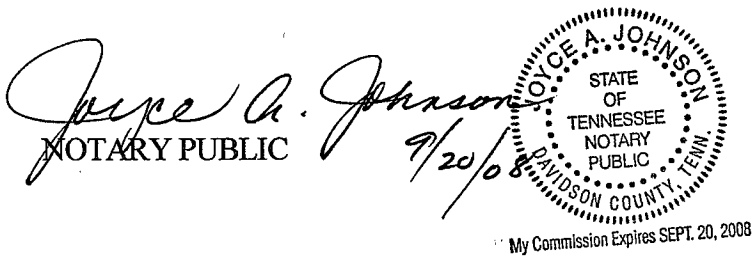 Joyce A. Johnson
NOTARY PUBLIC
9/20/08
JOYCE A. JOHNSON
STATE
OF
TENNESSEE
NOTARY
PUBLIC
DAVIDSON COUNTY, TENN.
My Commission Expires SEPT. 20, 2008